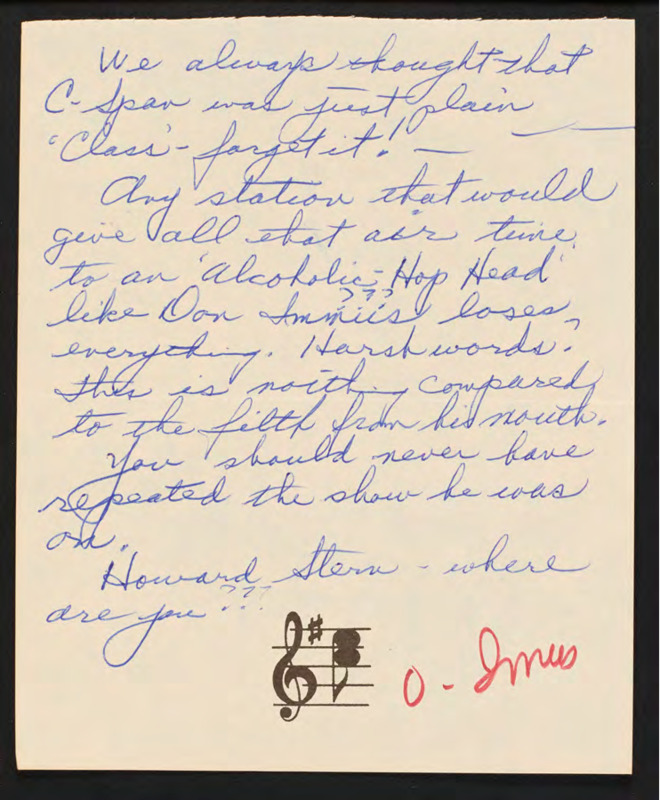 We always thought that
C-Span was just plain
'Class' - forget it! —
Any station that would
give all that air time
to an 'Alcoholic - Hop Head'
???
like Don Immiis loses
everything. Harsh words?
this is noithing compared
to the filth from his mouth.
You should never have
repeated the show he was
on.
Howard Stern - where
are you ???
O - Imus